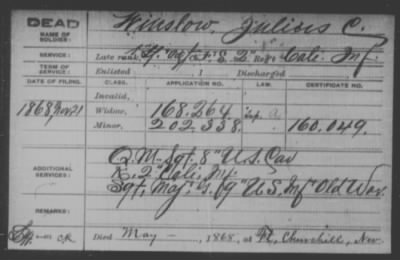 DEAD
NAME OF SOLDIER:
Winslow, Julius C.
SERVICE:
Late rank, 1" Lt. & Adjt. "S. 2" Regt. Cali. Inf.
TERM OF SERVICE:
Enlisted , 1 Discharged
DATE OF FILING. CLASS. APPLICATION NO. CERTIFICATE NO.
Invalid,
1868, Nov 21 Widow, 168.264
Minor, 202.338. 160.049.
ADDITIONAL SERVICES:
Q.M. Sgt. 8" U.S. Cav
K. 2 Cali. Inf.
Sgt. Maj. G. 9" U.S. Inf. Old War.
REMARKS:
Died May - , 1868, at Ft. Churchill, Nev.